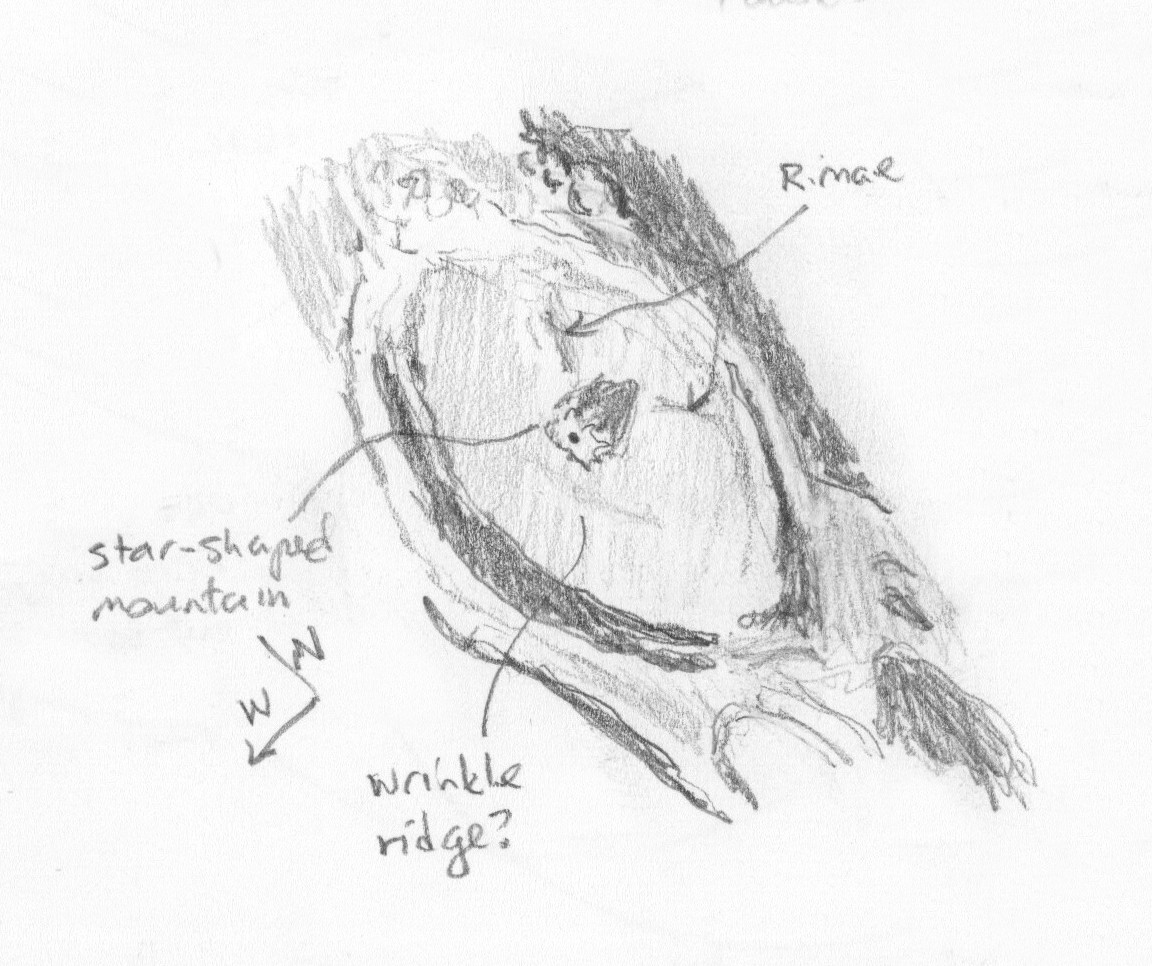 Rimae
star-shaped
mountain
N
W
wrinkle
ridge?